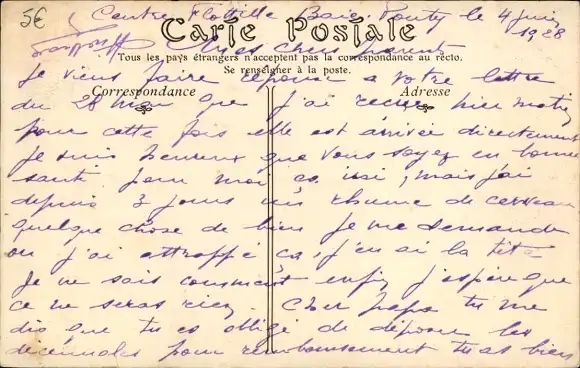 5€
Centre Flottille Baie Ponty le 4 juin
1928
Carte Postale
Mes chers parents
Tous les pays étrangers n'acceptent pas la correspondance au recto.
Se renseigner à la poste.
Je viens faire réponse a votre lettre
Correspondance
Adresse
du 28 mai que j'ai recue hier matin
pour cette fois elle est arrivée directement
Je suis heureux que vous soyez en bonne
santé pour moi ça vai, mais j'ai
depuis 3 jours un rhume de cerveau
quelque chose de bien je me demande
ou j'ai attrappé ça, j'en ai la tête
Je ne sais comment enfin j'espère que
ce ne seras rien Cher papa tu me
dis que tu es obligé de déposer les
décennales pour remboursement tu as bien